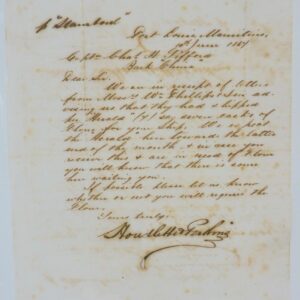 Port Louis, Mauritius,
June 187
Capt. Chas. H. Gifford
Bark China
Dear Sir.
We are in receipt of letter
from Messrs Wm Phillips & Son ad-
vising us that they had shipped
per "Herald" (7) say seven casks of
Flour for your Ship. We expect
the Herald here towards the latter
end of the month & in case you
receive this & are in need of Flour
you will know that there is some
here waiting you.
If possible please let us know
whether or not you will require the
Flour.
Yours truly